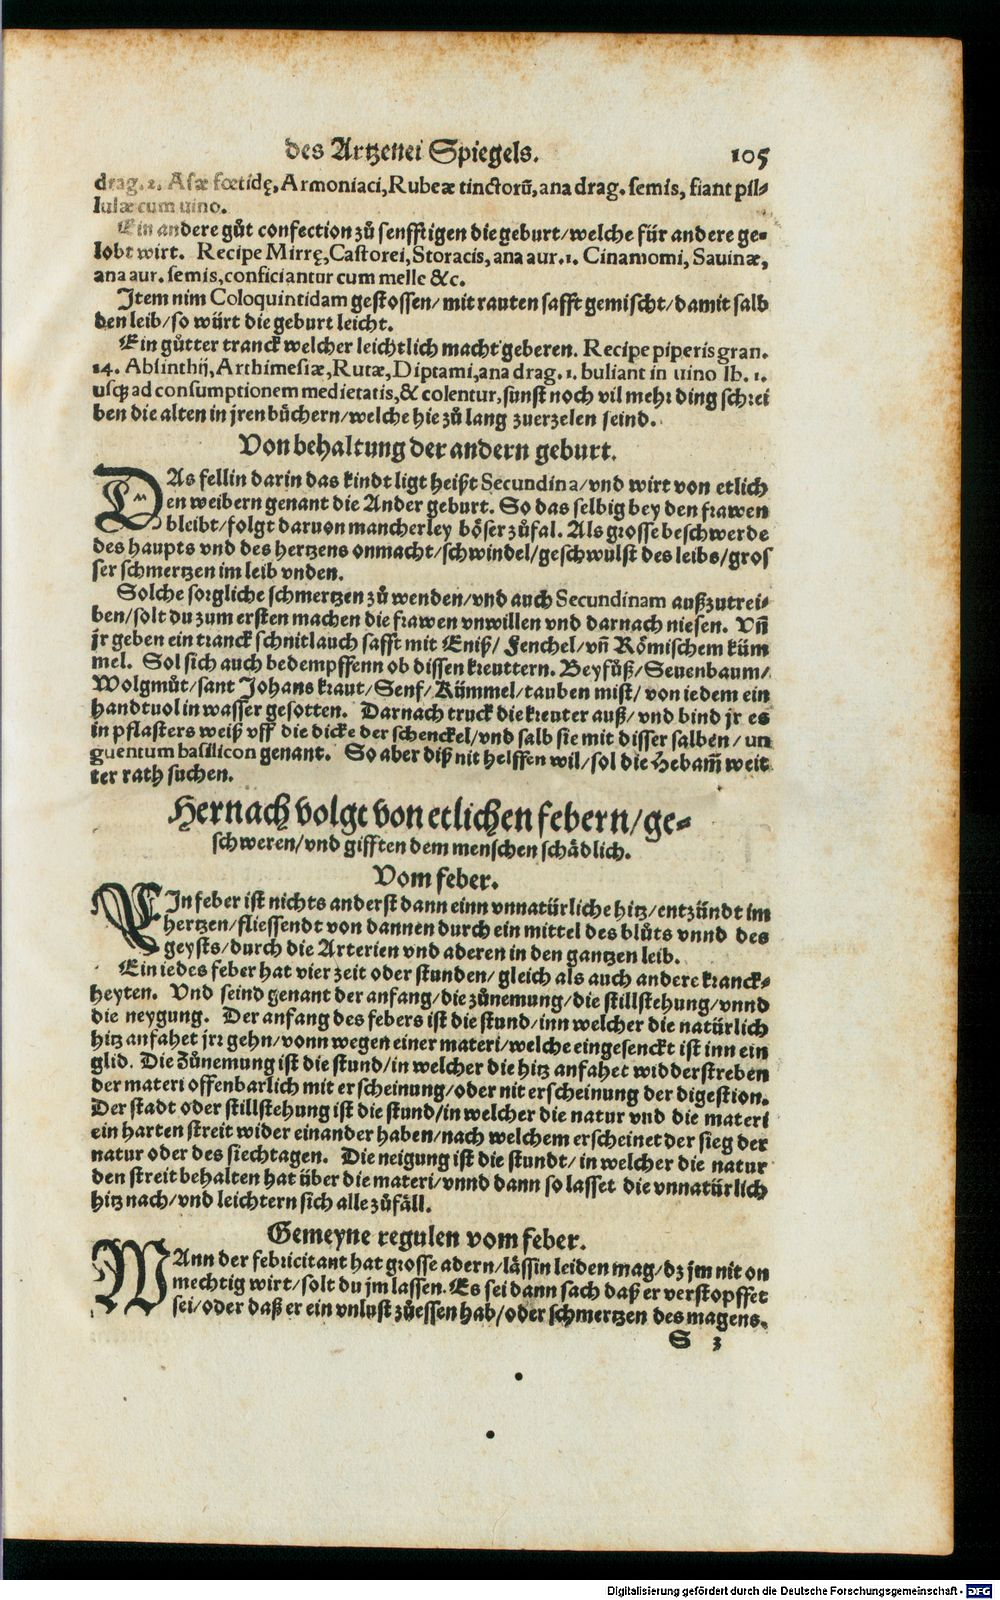 des Artzenei Spiegels. 105
drag. 2. Asæ fœtidę, Armoniaci, Rubeæ tinctorũ, ana drag. semis, fiant pil-
lulæ cum uino.
Ein andere gůt confection zů senfftigen die geburt/welche für andere ge-
lobt wirt. Recipe Mirrę, Castorei, Storacis, ana aur. 1. Cinamomi, Sauinæ,
ana aur. semis, conficiantur cum melle &c.
Item nim Coloquintidam gestossen/mit rauten safft gemischt/damit salb
den leib/so würt die geburt leicht.
Ein gůtter tranck welcher leichtlich macht geberen. Recipe piperis gran.
14. Absinthij, Arthimesiæ, Rutæ, Diptami, ana drag. 1. buliant in uino lb. 1.
usq; ad consumptionem medietatis, & colentur, sunst noch vil mehr ding schrei
ben die alten in jren bůchern/welche hie zů lang zuerzelen seind.
Von behaltung der andern geburt.
DAs fellin darin das kindt ligt heißt Secundina/vnd wirt von etlich
en weibern genant die Ander geburt. So das selbig bey den frawen
bleibt/folgt daruon mancherley böser zůfal. Als grosse beschwerde
des haupts vnd des hertzens onmacht/schwindel/geschwulst des leibs/gros
ser schmertzen im leib vnden.
Solche sorgliche schmertzen zů wenden/vnd auch Secundinam außzutrei-
ben/solt du zum ersten machen die frawen vnwillen vnd darnach niesen. Vñ
jr geben ein tranck schnitlauch safft mit Eniß/ Fenchel/vñ Römischem küm
mel. Sol sich auch bedempffenn ob dissen kreuttern. Beyfůß/Seuenbaum/
Wolgmůt/sant Johans kraut/Senf/Kümmel/tauben mist/von iedem ein
handtuol in wasser gesotten. Darnach truck die kreuter auß/vnd bind jr es
in pflasters weiß vff die dicke der schenckel/vnd salb sie mit disser salben/un
guentum basilicon genant. So aber diß nit helffen wil/sol die Hebam̃ weit
ter rath suchen.
Hernach volgt von etlichen febern/ge-
schweren/vnd gifften dem menschen schädlich.
Vom feber.
EIn feber ist nichts anderst dann einn vnnatürliche hitz/entzündt im
hertzen/fliessendt von dannen durch ein mittel des blůts vnnd des
geysts/durch die Arterien vnd aderen in den gantzen leib.
Ein iedes feber hat vier zeit oder stunden/gleich als auch andere kranck-
heyten. Vnd seind genant der anfang/die zůnemung/die stillstehung/vnnd
die neygung. Der anfang des febers ist die stund/inn welcher die natürlich
hitz anfahet jrr gehn/vonn wegen einer materi/welche eingesenckt ist inn ein
glid. Die Zůnemung ist die stund/in welcher die hitz anfahet widderstreben
der materi offenbarlich mit erscheinung/oder nit erscheinung der digestion.
Der stadt oder stillstehung ist die stund/in welcher die natur vnd die materi
ein harten streit wider einander haben/nach welchem erscheinet der sieg der
natur oder des siechtagen. Die neigung ist die stundt/in welcher die natur
den streit behalten hat über die materi/vnnd dann so lasset die vnnatürlich
hitz nach/vnd leichtern sich alle zůfäll.
Gemeyne regulen vom feber.
WAnn der febricitant hat grosse adern/lässin leiden mag/dz jm nit on
mechtig wirt/solt du jm lassen. Es sei dann sach daß er verstopffet
sei/oder daß er ein vnlust zůessen hab/oder schmertzen des magens.
S 3
Digitalisierung gefördert durch die Deutsche Forschungsgemeinschaft - DFG